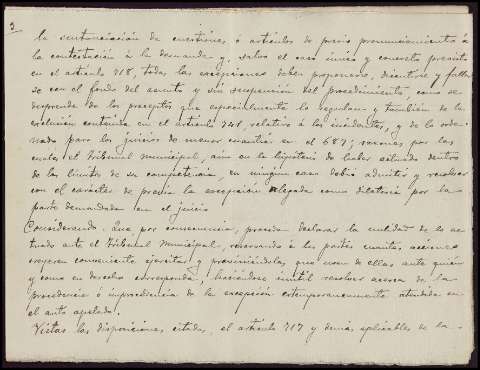 3
la sustanciación de cuestiones ó artículos de previo pronunciamiento á
la contestación á la demanda y, salvo el caso único y concreto previsto
en el artículo 718, todas las excepciones deben proponerse, discutirse y fallar-
se con el fondo del asunto y sin suspensión del procedimiento como se
desprende de los preceptos que especialmente lo regulan y también de la
exclusión contenida en el artículo 741, relativo á los incidentes, y de lo orde-
nado para los juicios de menor cuantía en el 687; razones por las
cuales el Tribunal municipal, aun en la hipótesis de haber actuado dentro
de los límites de su competencia, en ningún caso debió admitir y resolver
con el carácter de previa la excepción alegada como dilatoria por la
parte demandada en el juicio
Considerando: Que, por consecuencia, procede declarar la nulidad de lo ac-
tuado ante el Tribunal Municipal, reservando á las partes cuantas acciones
creyeren conveniente ejercitar y previniéndolas que usen de ellas ante quién
y como en derecho corresponda, haciéndose inútil resolver acerca de la
procedencia ó improcedencia de la excepción extemporáneamente atendida en
el auto apelado.
Vistas las disposiciones citadas, el artículo 717 y demás aplicables de la